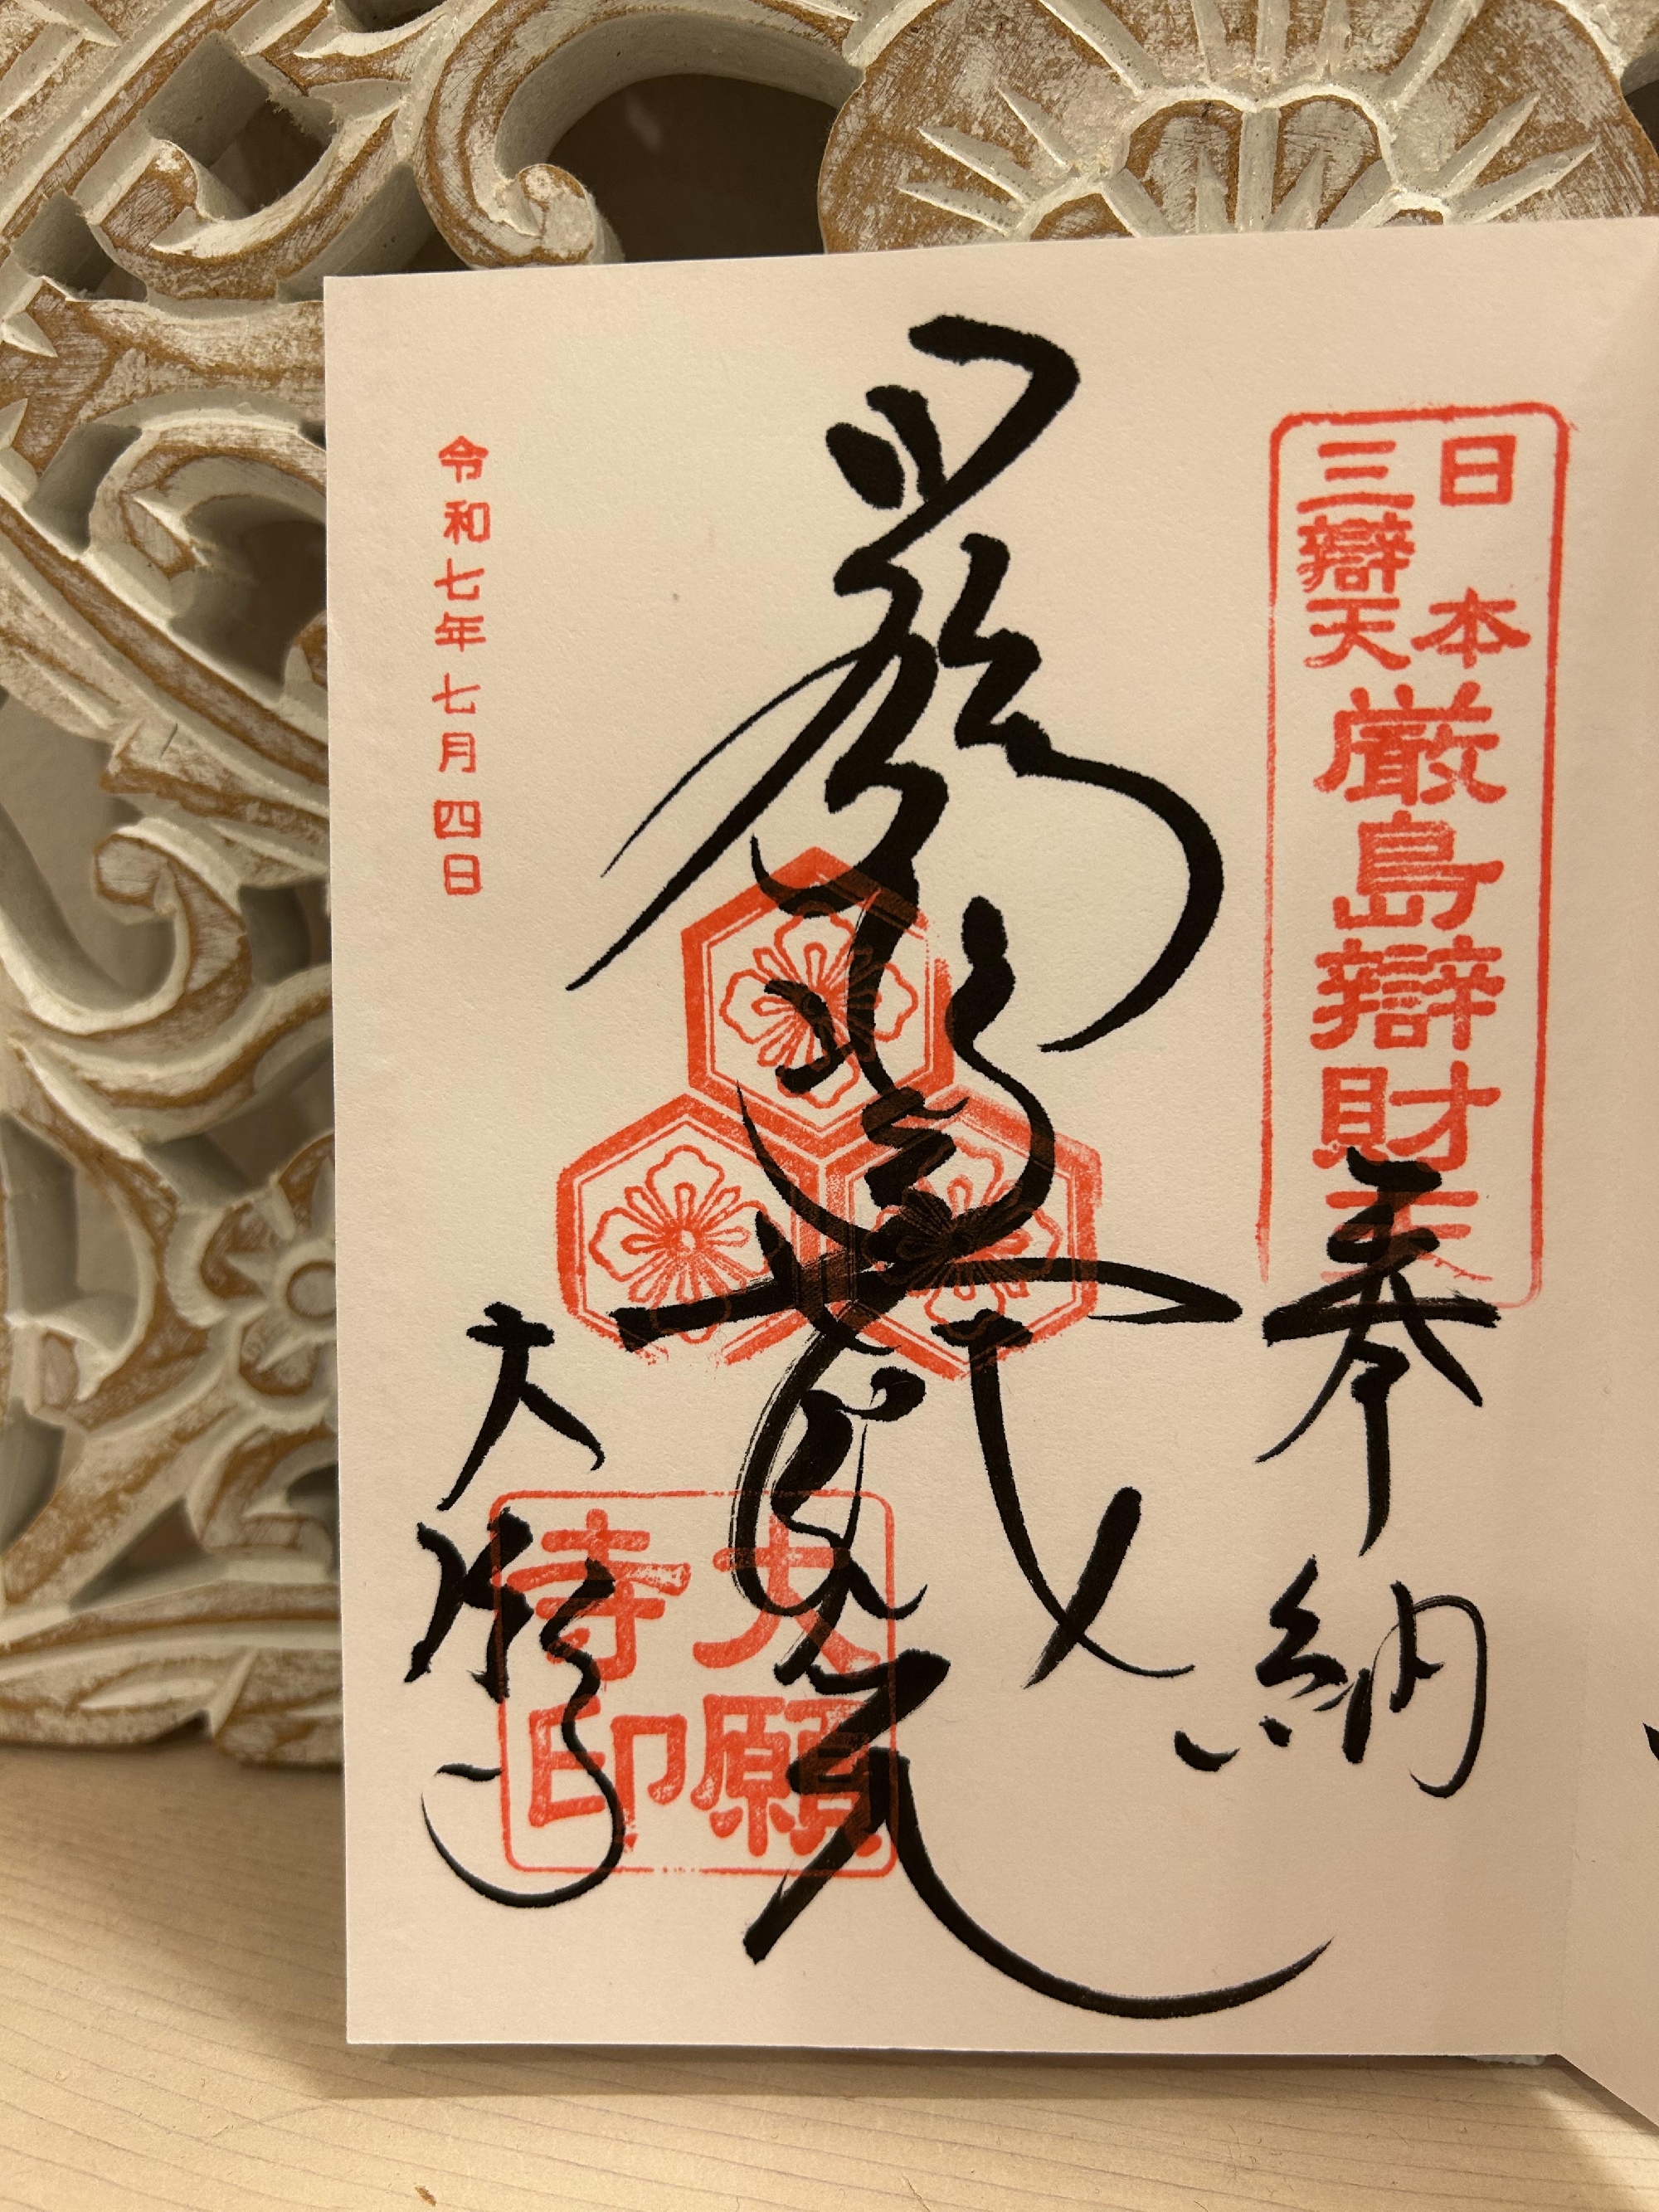 日本
三辯天
厳島辯財天
奉納
大願
寺印
令和七年七月四日
大願寺